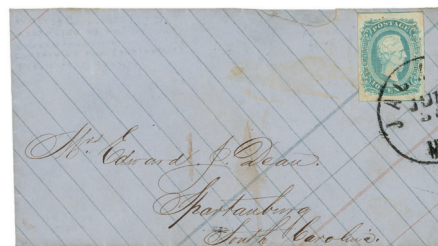 POSTAGE
JAC
Mrs Edward J. Dean.
Spartanburg
South Carolina.